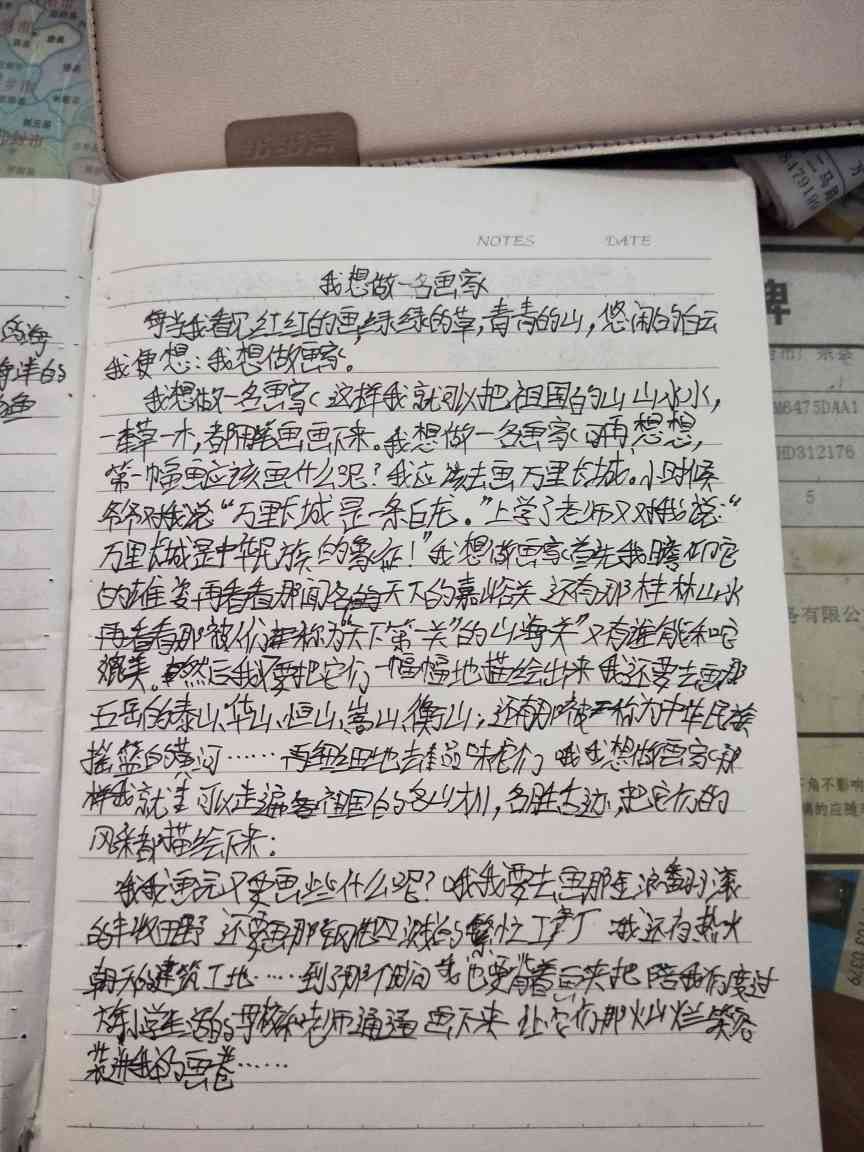 NOTES DATE
我想做一名画家
每当我看见红红的画,绿绿的草,青青的山,悠闲的白云
我便想:我想做画家。
我想做一名画家 这样我就可以把祖国的山山水水,
一草一木,都用笔画画下来。我想做一名画家 可再想想,
第一幅画应该画什么呢?我应该去画万里长城。小时候
爷爷对我说“万里长城是一条白龙。”上学了老师又对我说:“
万里长城是中华民族的象征!”我想做画家首先我瞻仰它
的雄姿再看看那闻名天下的嘉峪关 还有那桂林山水
再看看那被人们称为“天下第一关”的山海关”又有谁能和它
媲美。然后我要把它们一幅幅地描绘出来 我还要去画那
五岳的泰山、华山、恒山、嵩山、衡山;还有那被称为中华民族
摇篮的黄河……再细细地去品味它们 哦我想做画家 那
样我就可以走遍祖国的名山大川,名胜古迹,把它们的
风采都描绘下来:
我画完又要画些什么呢?哦我要去画那金浪翻滚
的丰收田野 还要画那钢花四溅的繁忙工厂 哦还有热火
朝天的建筑工地……到了那个时间 我也要背着画夹把陪我度过
小学生活的学校和老师通通画下来 让它们那灿烂笑容
装进我的画卷……
二马路
M6475DAA1
HD312176
5
务有限公
下角不影响